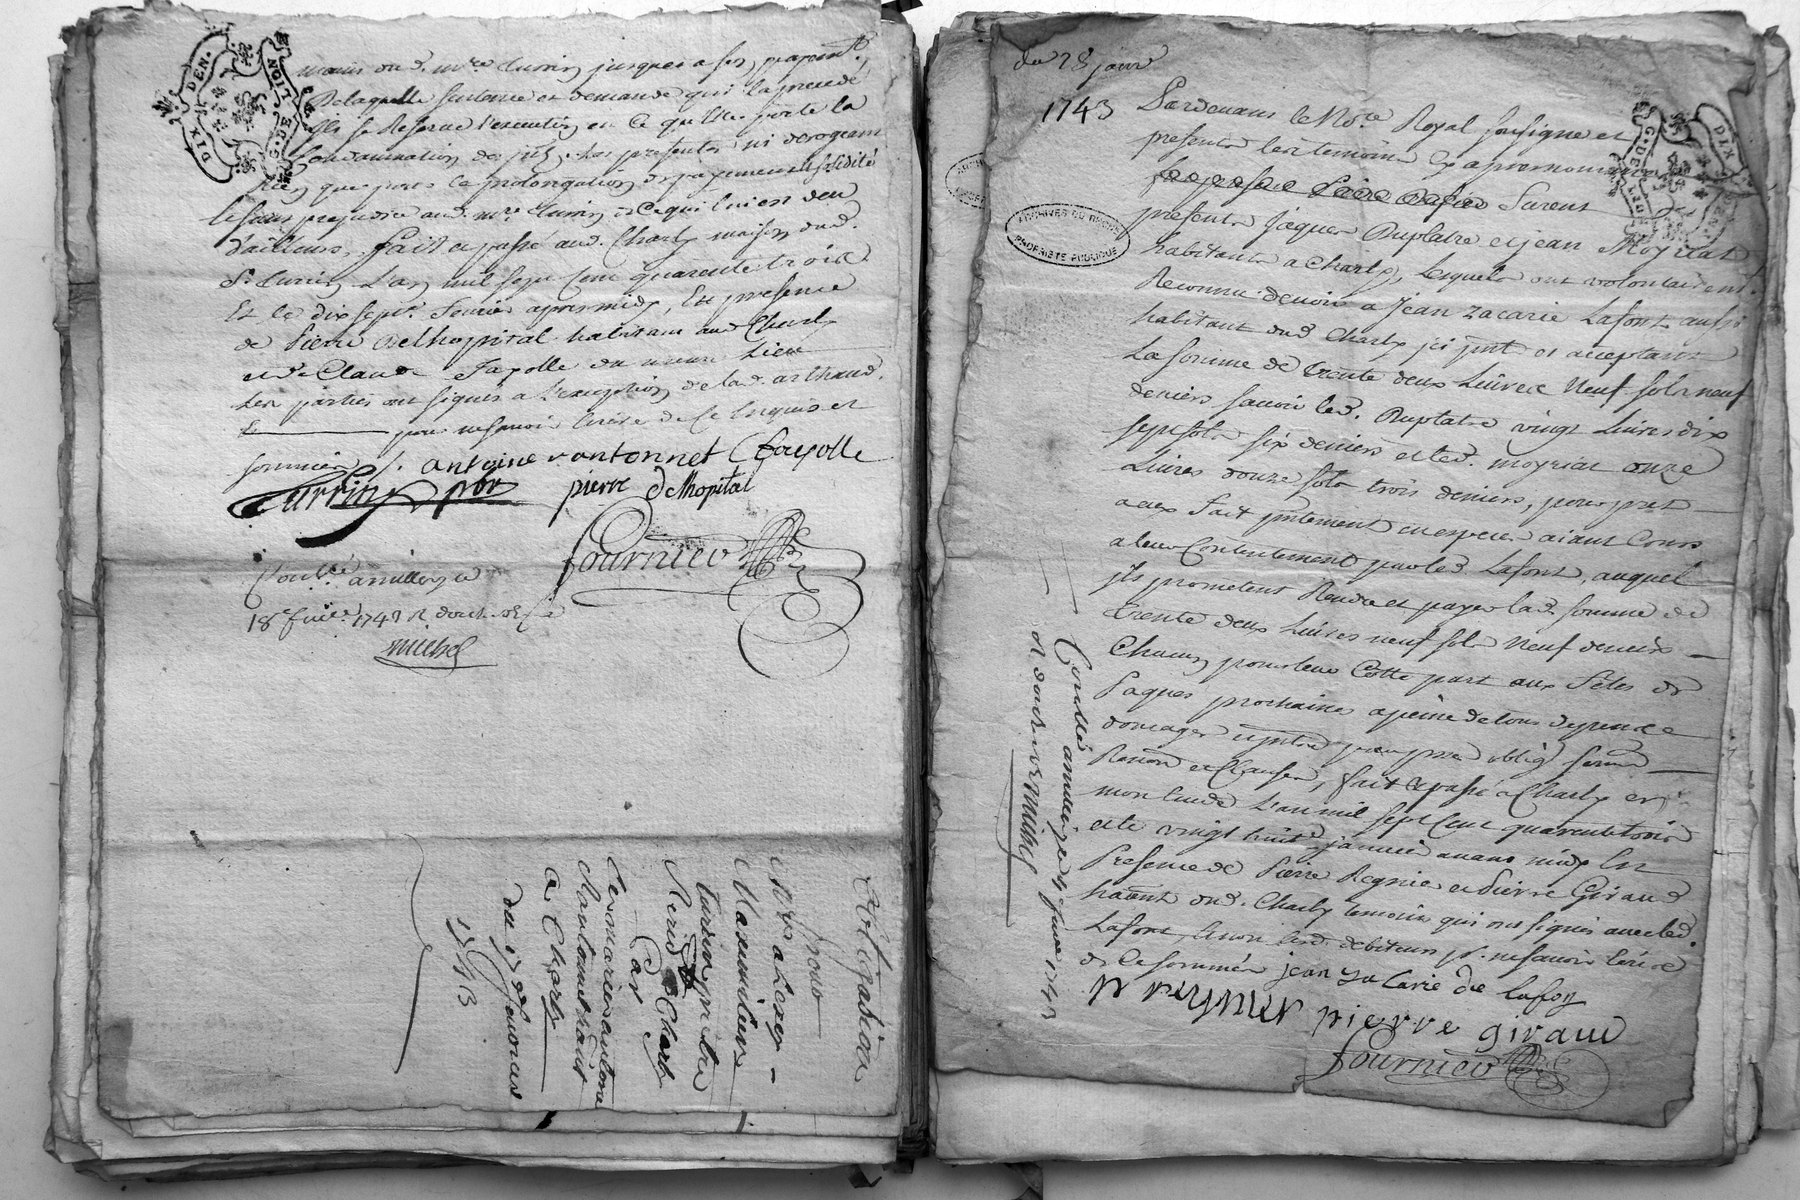 DIX DEN.
G. DE LION
mains dud. mre Turrin jusques a ses payements
De laquelle sentence et demande qui la precedé
ils se Reserve l'execution en ce qu'elle porte la
Condamnation des
rien que pour la prolongation de payement solidité
le sans prejudice aud. mre Turrin de ce qui luy est deu
d'ailleurs, fait et passé aud. Charly maison dud.
Sr Turrin L'an mil sept Cent quarente trois
Et le dix sept fevrier apres midy, En presence
de Pierre Delhopital habitant aud. Charly
et de Claude Fayolle du meme Lieu
les parties ont signés a l'exception de lad. arthaud.
pour ne savoir écrire de ce enquis et
sommée /.
antoine vantonnet C fayolle
Turrin pbr pierre Delhopital
fournier
Conllé a millery le
18e fevr. 1743 R douze sols
michel
Obligation
pour
Mre
Maximilien
turrin pretre
a Charly
Par
a Charly
du 17 fevrier
1743
du 28 janv
1743
G. DE LION
DIX DEN.
Pardevant le Nore Royal soussigne et
presents les temoins cy apres nommés
furent
presents Jaques Duplatre et jean Moyriat
habitants a Charly, lesquels ont volontairemt
Reconnu devoir a Jean Zacarie Lafont aussi
habitant dud. Charly ici pnt et acceptant
La somme de trente deux Livres neuf sols neuf
deniers savoir led. Duplatre vingt Livres dix
sept sols six deniers et led. moyriat onze
Livres douze sols trois deniers, pour pret
a eux fait en especes aiant Cours
a leur Contentement par led. Lafont, auquel
ils promettent Rendre et payer lad. somme de
trente deux Livres neuf sols neuf deniers
Chacun pour leur Cotte part aux fêtes de
Paques prochaines a peine de tous depens
domages oblig
Renon et Clauses, fait et passé a Charly en
mon Etude L'an mil sept Cent quarente trois
et le vingt huit janvier avant midy En
Presence de Pierre Regnier et Pierre Giraud
habitant dud. Charly temoins qui ont signés avec led.
Lafont, et non lesd. debiteurs pr. ne savoir écrire
de ce sommés jean za carie de lafon
p reynier pierre giraud
fournier
ARCHIVES DU RHÔNE
PROPRIÉTÉ PUBLIQUE
Conllé a millery le 4 fevrier 1743
R douze sols michel